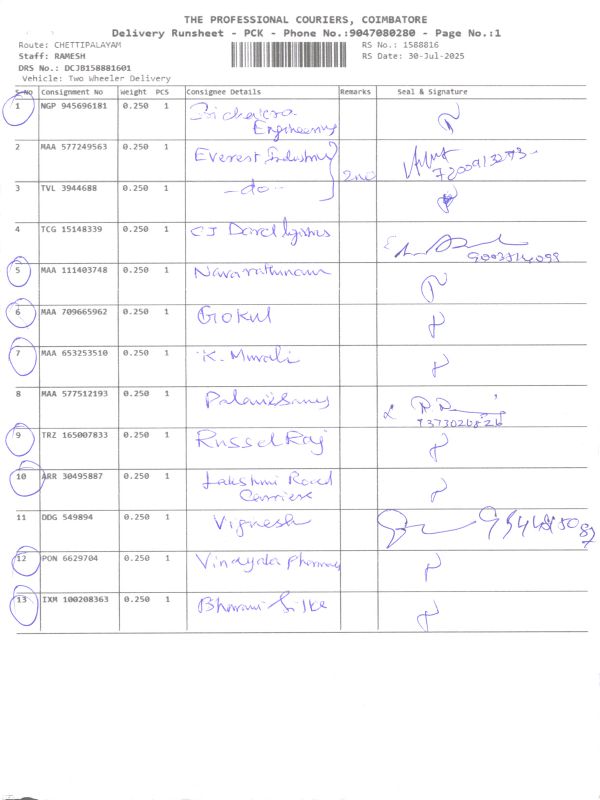 THE PROFESSIONAL COURIERS, COIMBATORE
Delivery Runsheet - PCK - Phone No.:9047080280 - Page No.:1
Route: CHETTIPALAYAM RS No.: 1588816
Staff: RAMESH RS Date: 30-Jul-2025
DRS No.: DCJB158881601
Vehicle: Two Wheeler Delivery
S.No Consignment No Weight PCS Consignee Details Remarks Seal & Signature
1 NGP 945696181 0.250 1
Engineering
2 MAA 577249563 0.250 1 Everest Industries
2no
3 TVL 3944688 0.250 1 -do-
4 TCG 15148339 0.250 1 CJ
5 MAA 111403748 0.250 1 Navarathnam
6 MAA 709665962 0.250 1 Gokul
7 MAA 653253510 0.250 1 K. Murali
8 MAA 577512193 0.250 1 Palanisamy
9 TRZ 165007833 0.250 1 Russel Raj
10 ARR 30495887 0.250 1 Lakshmi Road
Carriers
11 DDG 549894 0.250 1 Vignesh
12 PON 6629704 0.250 1 Vinayala Pharmacy
13 IXM 100208363 0.250 1 Bhavani Silks